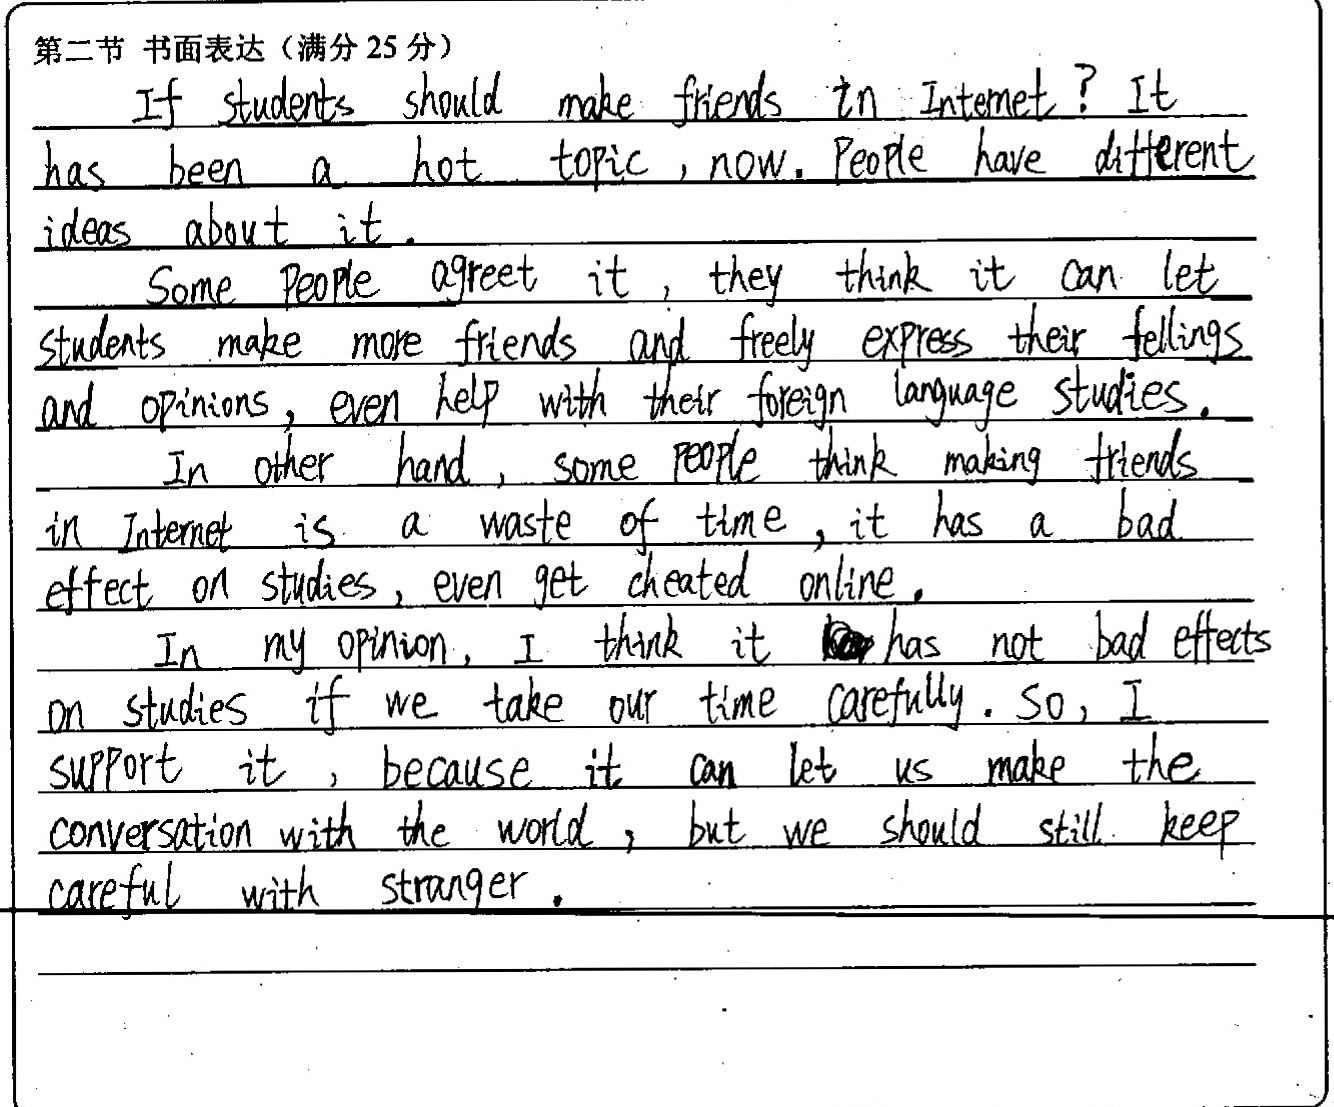 第二节 书面表达（满分 25 分）
If students should make friends in Internet? It
has been a hot topic, now. People have different
ideas about it.
Some People agreet it, they think it can let
students make more friends and freely express their fellings
and opinions, even help with their foreign language studies.
In other hand, some people think making friends
in Internet is a waste of time, it has a bad
effect on studies, even get cheated online.
In my opinion, I think it has not bad effects
on studies if we take our time carefully. So, I
support it, because it can let us make the
conversation with the world, but we should still keep
careful with stranger.